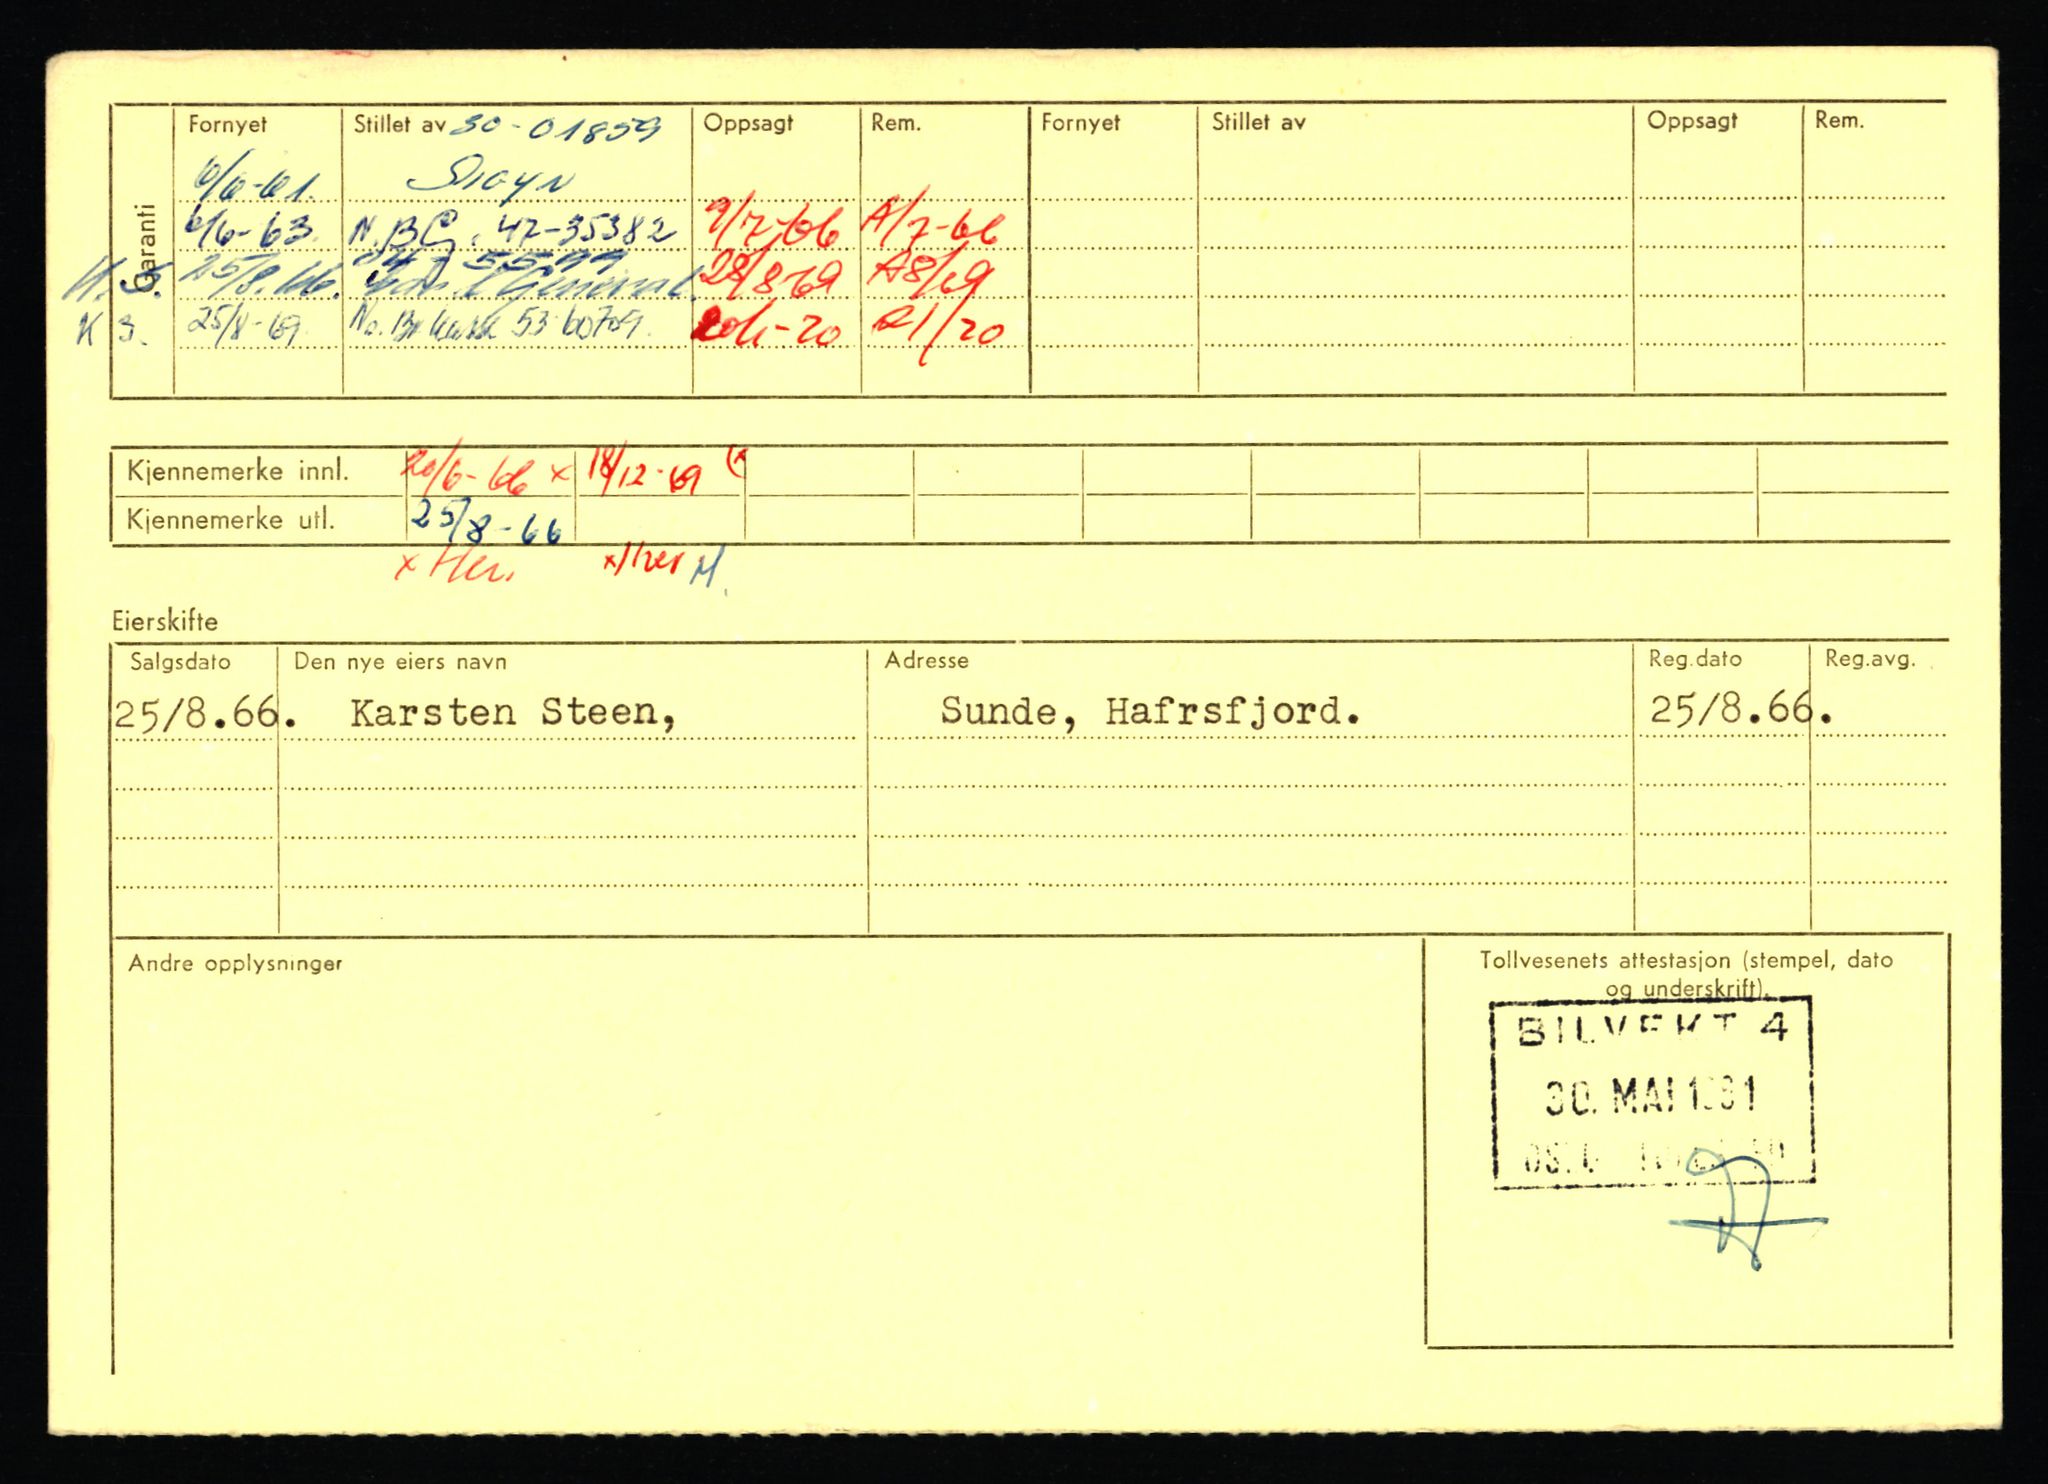 Garanti
Fornyet Stillet av 30-01859 Oppsagt Rem. Fornyet Stillet av Oppsagt Rem.
6/6-61.
6/6-63. N.B.G. 47-35382 9/7-66 A/7-66
25/8.66. General. 28/8-69 A8/69
K 3. 25/8-69 53 60709.
Kjennemerke innl. 20/6-66 x 18/12-69
Kjennemerke utl. 25/8-66
x Her. x Her
Eierskifte
Salgsdato Den nye eiers navn Adresse Reg.dato Reg.avg.
25/8.66. Karsten Steen, Sunde, Hafrsfjord. 25/8.66.
Andre opplysninger
Tollvesenets attestasjon (stempel, dato
og underskrift).
BILVEKT 4
30. MAI 1961